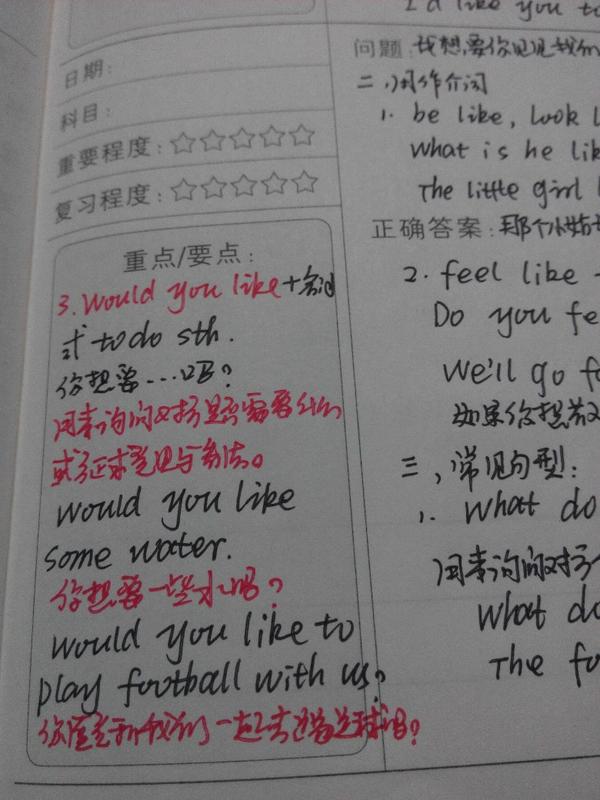 I'd like you to
日期:
科目:
重要程度:
复习程度:
重点/要点:
3. Would you like+名词
或 to do sth.
你想要...吗?
用来询问对方是否需要什么
或征求意见与看法。
Would you like
some water.
你想要一些水吗?
Would you like to
play football with us?
你愿意和我们一起去踢足球吗?
问题: 我想要你见见我的
二、用作介词
1. be like, look l
What is he lik
The little girl l
正确答案: 那个小姑
2. feel like
Do you fe
We'll go f
如果你想
三、常见句型:
1. What do
用来询问对方
What do
The fo